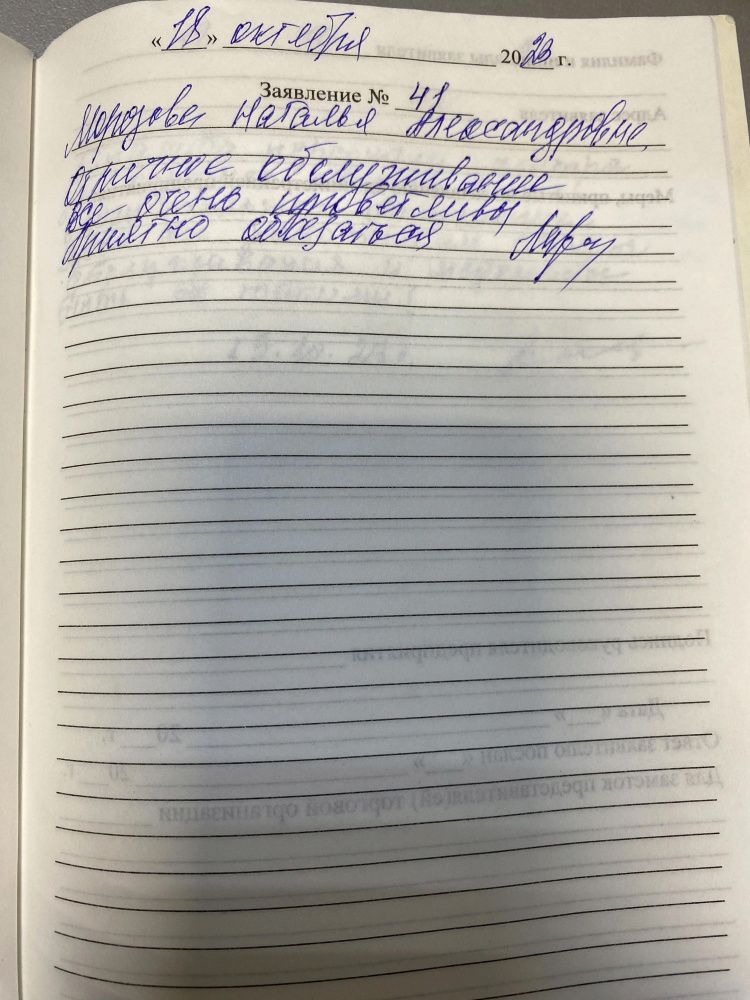 «18» октября 2023 г.
Заявление № 41
Морозова Наталья Александровна.
Отличное обслуживание
Все очень приветливы
Приятно